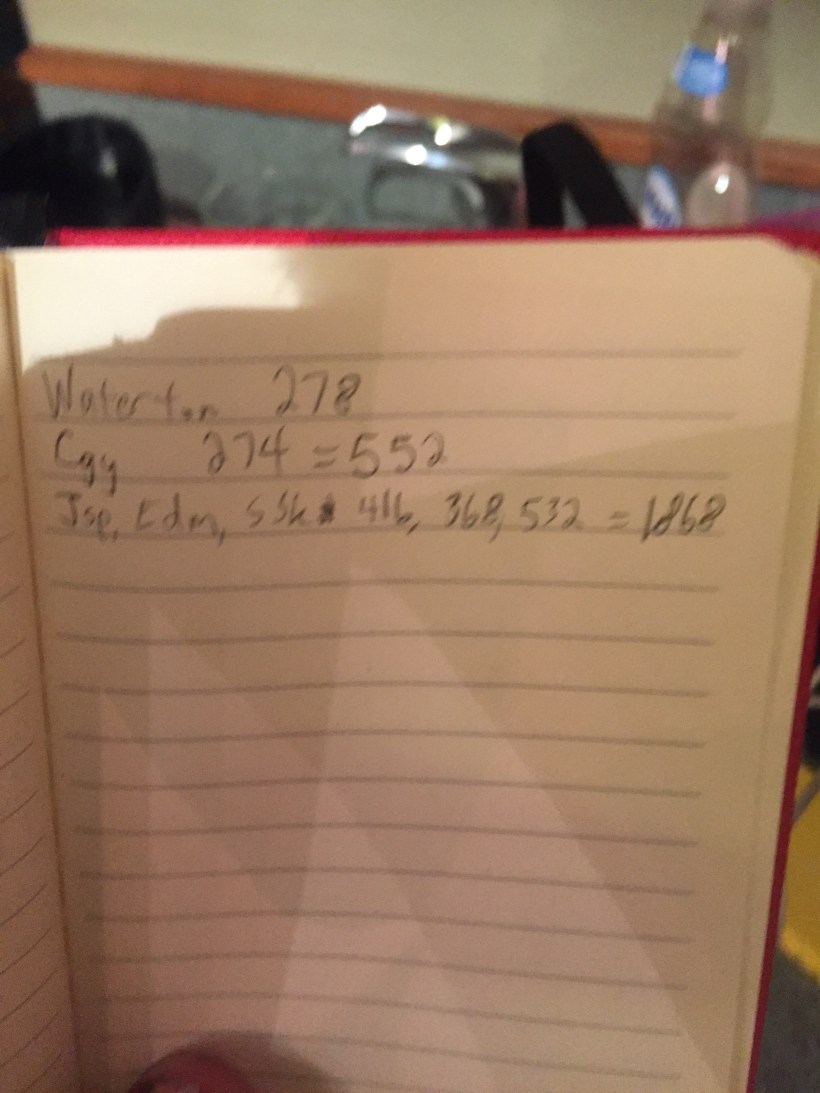 Waterton 278
Cgy 274 = 552
Jsp, Edm, SSk 416, 368, 532 = 1868